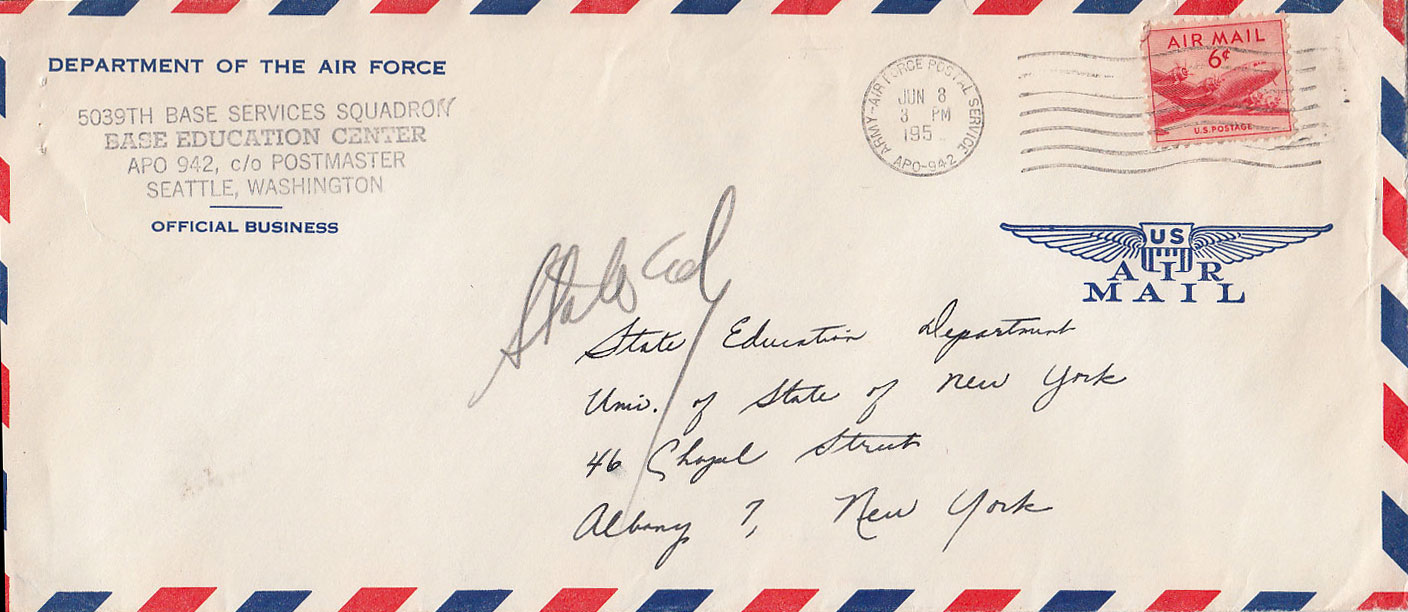 DEPARTMENT OF THE AIR FORCE
5039TH BASE SERVICES SQUADRON
BASE EDUCATION CENTER
APO 942, c/o POSTMASTER
SEATTLE, WASHINGTON
OFFICIAL BUSINESS
ARMY-AIR FORCE POSTAL SERVICE
JUN 8
3 PM
195
APO-942
AIR MAIL
6¢
U.S. POSTAGE
US
AIR
MAIL
State Ed
State Education Department
Univ. of State of New York
46 Chapel Street
Albany 7, New York